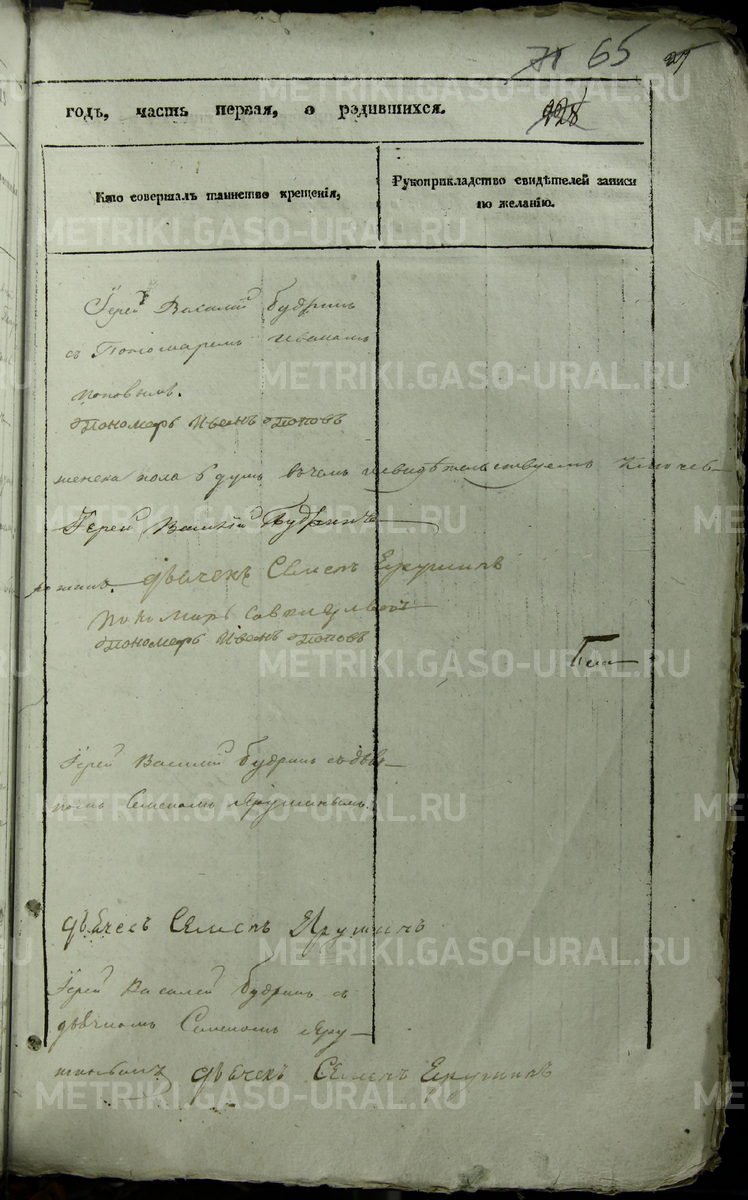 65
годъ, часть первая, о родившихся.
228
Кто совершалъ таинство крещенія,
Рукоприкладство свидѣтелей записи
по желанію.
Іерей Василій Будринъ
съ Пономаремъ Иваномъ
Поповымъ.
Пономарь Иванъ Поповъ
женска пола 6 душъ въ чемъ и свидѣтельствуемъ
Іерей Василій Будринъ
дьячекъ Семенъ Ерушинъ
пономарь
Пономарь Иванъ Поповъ
Іерей Василій Будринъ съ дья-
Семеномъ Ярушинымъ.
дьячекъ Семенъ Ярушинъ
Іерей Василей Будринъ съ
дьячкомъ Семеномъ Яру-
шинымъ дьячекъ Семенъ Ерушинъ
METRIKI.GASO-URAL.RU